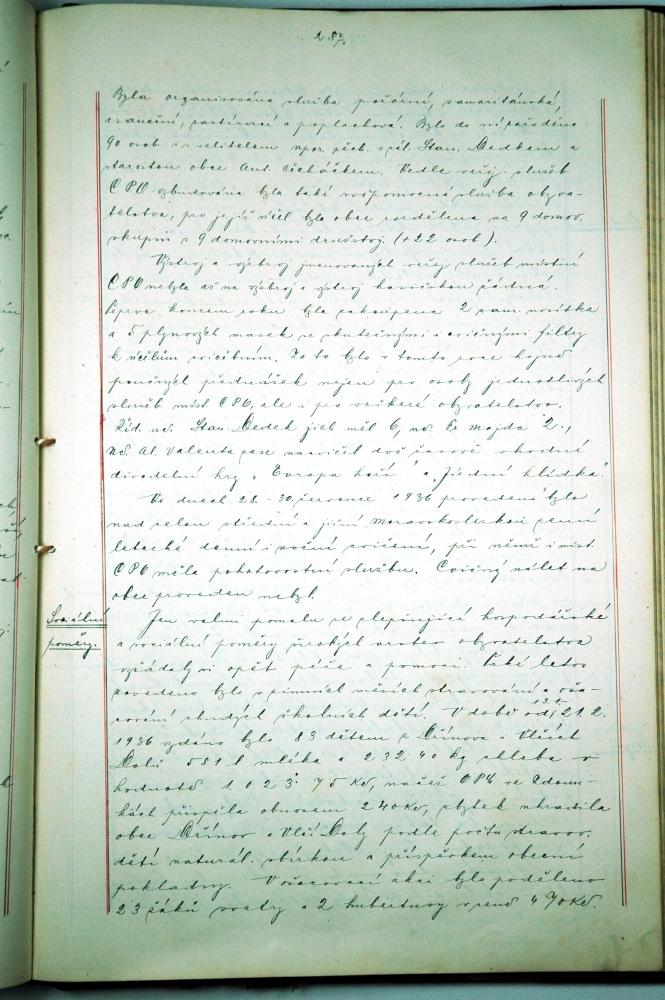 287.
Byla organisována služba požární, samaritánská,
asanační, pastírací a poplachová. Bylo do ní pařaděno
90 osob s velitelem npor. pěch. v zál. Stan. Dedkem a
starostou obce Ant. Čicháčkem. Vedle veřej. služeb
CPO vybudována byla také svépomocná služba obyva-
telstva, pro jejíž účel byla obec rozdělena na 9 domov.
skupin s 9 domovními družstvy (+ 22 osob).
Výstroj a výzbroj jmenovaných veřej. služeb místní
CPO nebyla až na výzbroj a výstroj hasičskou žádná.
Teprve koncem roku byla zakoupena 2 sam. nosítka
a 5 plynových masek se skutečnými i cvičnými filtry
k účelům cvičebním. Za to bylo v tomto roce hojně
poučných přednášek nejen pro osoby jednotlivých
služeb míst. CPO, ale i pro veškeré obyvatelstvo.
Říd. uč. Stan. Dedek jich měl 6, uč. Fr. Majda 2.,
uč. Al. Valenta zase nacvičil dvě časově vhodné
divadelní hry „Evropa hoří" a „Jízdní hlídka".
Ve dnech 28.-30. července 1936 provedeno bylo
nad celou střední a jižní Moravou
letecké denní i noční cvičení, při němž i míst.
CPO měla pohotovostní službu. Cvičný nálet na
obec proveden nebyl.
Sociální poměry.
Jen velmi pomalu se zlepšující hospodářské
a sociální poměry širokých vrstev obyvatelstva
vyžádaly si opět péče a pomoci. Také letos
zavedeno bylo v zimních měsících stravování a oša-
cování chudých školních dětí. V době od 13.1.-21.2.
1936 vydáno bylo 83 dětem z Dřínova a Vlčích
Dolů 581 l mléka a 232·40 kg chleba v
hodnotě 1.023·75 Kč, načež OPM. ve Zdoun-
kách přispěla obnosem 240 Kč, zbytek uhradila
obec Dřínov a Vlčí Doly podle počtu stravov.
dětí naturál. sbírkou a příspěvkem obecní
pokladny. V ošacovací akci bylo poděleno
23 žáků svetry a 2 hubertusy v ceně 470 Kč.